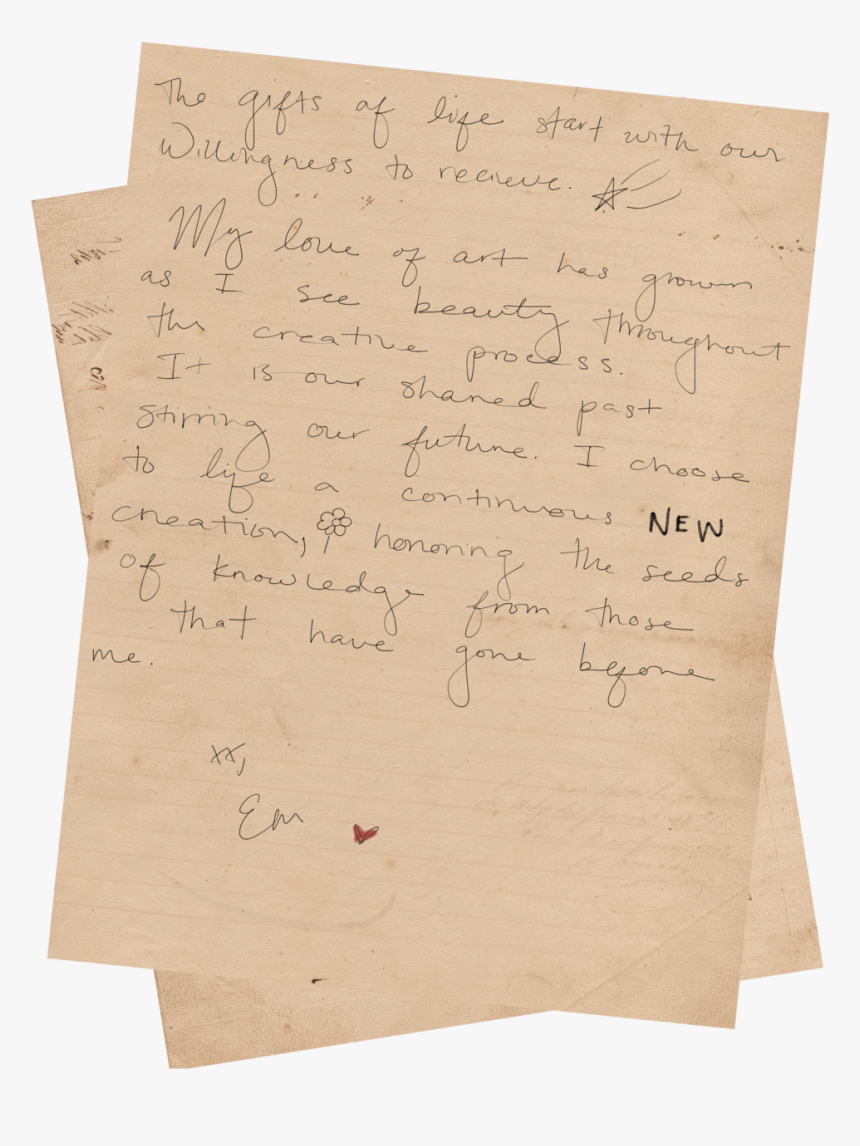 The gifts of life start with our
Willingness to recieve.
My love of art has grown
as I see beauty throughout
the creative process.
It is our shared past
stirring our future. I choose
to life a continuous NEW
creation, honoring the seeds
of knowledge from those
that have gone before
me.
xx,
Em